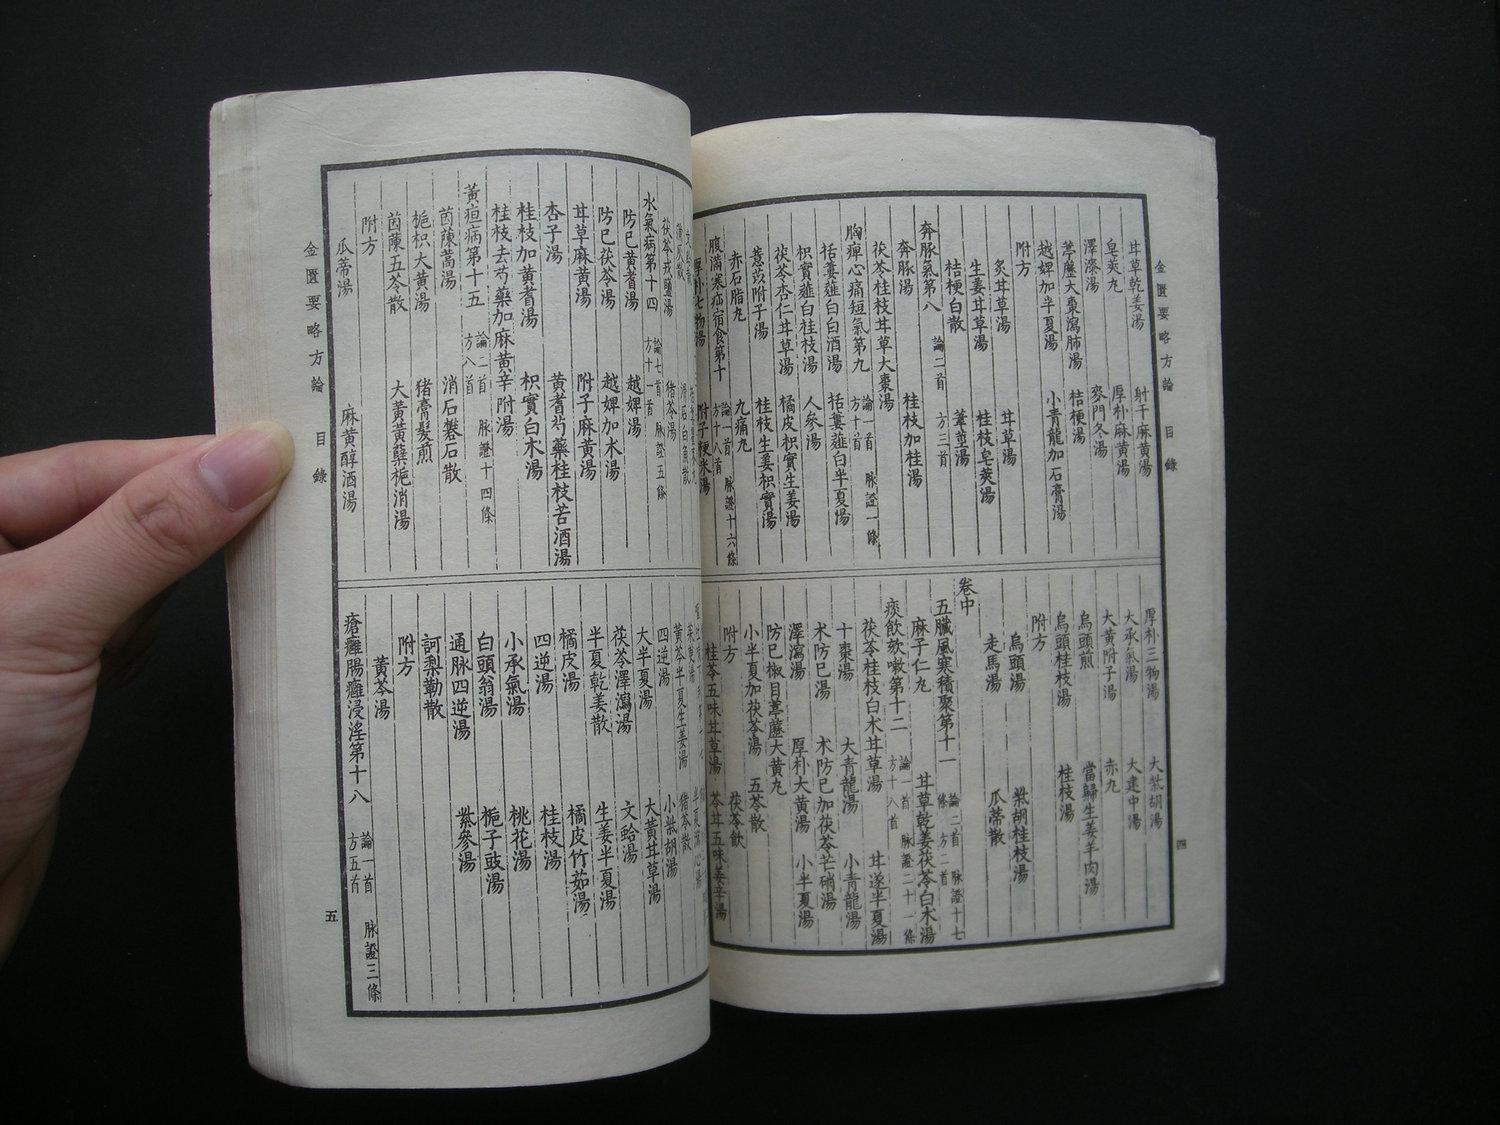 金匱要略方論 目錄 四
甘草乾姜湯 射干麻黃湯
皂莢丸 厚朴麻黃湯
澤漆湯 麥門冬湯
葶藶大棗瀉肺湯 桔梗湯
越婢加半夏湯 小青龍加石膏湯
附方
炙甘草湯 甘草湯
生姜甘草湯 桂枝皂莢湯
桔梗白散 葦莖湯
奔豚氣第八 論二首 方三首
奔豚湯 桂枝加桂湯
茯苓桂枝甘草大棗湯
胸痹心痛短氣第九 論一首 脉證一條 方十首
栝蔞薤白白酒湯 栝蔞薤白半夏湯
枳實薤白桂枝湯 人參湯
茯苓杏仁甘草湯 橘皮枳實生姜湯
薏苡附子湯 桂枝生姜枳實湯
赤石脂丸 九痛丸
腹滿寒疝宿食第十 論一首 脉證十六條 方十八首
厚朴七物湯 附子粳米湯
厚朴三物湯 大柴胡湯
大承氣湯 大建中湯
大黃附子湯 赤丸
烏頭煎 當歸生姜羊肉湯
烏頭桂枝湯 桂枝湯
附方
烏頭湯 柴胡桂枝湯
走馬湯 瓜蒂散
卷中
五臟風寒積聚第十一 論二首 脉證十七條 方二首
麻子仁丸 甘草乾姜茯苓白朮湯
痰飲欬嗽第十二 論一首 脉證二十一條 方十八首
茯苓桂枝白朮甘草湯 甘遂半夏湯
十棗湯 大青龍湯 小青龍湯
木防已湯 木防已加茯苓芒硝湯
澤瀉湯 厚朴大黃湯 小半夏湯
防已椒目葶藶大黃丸
小半夏加茯苓湯 五苓散
附方 茯苓飲
桂苓五味甘草湯 苓甘五味姜辛湯
茯苓戎鹽湯 猪苓湯
水氣病第十四 論七首 脉證五條 方十一首
防已黃耆湯 越婢湯
防已茯苓湯 越婢加朮湯
甘草麻黃湯 附子麻黃湯
杏子湯 黃耆芍藥桂枝苦酒湯
桂枝加黃耆湯 枳實白朮湯
桂枝去芍藥加麻黃辛附湯
黃疸病第十五 論二首 脉證十四條 方八首
茵蔯蒿湯 消石礬石散
梔枳大黃湯 猪膏髮煎
茵蔯五苓散 大黃黃蘗梔消湯
附方
瓜蒂湯 麻黃醇酒湯
黃芩半夏生姜湯 猪苓散
四逆湯 小柴胡湯
大半夏湯 大黃甘草湯
茯苓澤瀉湯 文蛤湯
半夏乾姜散 生姜半夏湯
橘皮湯 橘皮竹茹湯
四逆湯 桂枝湯
小承氣湯 桃花湯
白頭翁湯 梔子豉湯
通脉四逆湯 紫參湯
訶梨勒散
附方
黃芩湯
瘡癰腸癰浸淫第十八 論一首 脉證三條 方五首
金匱要略方論 目錄 五